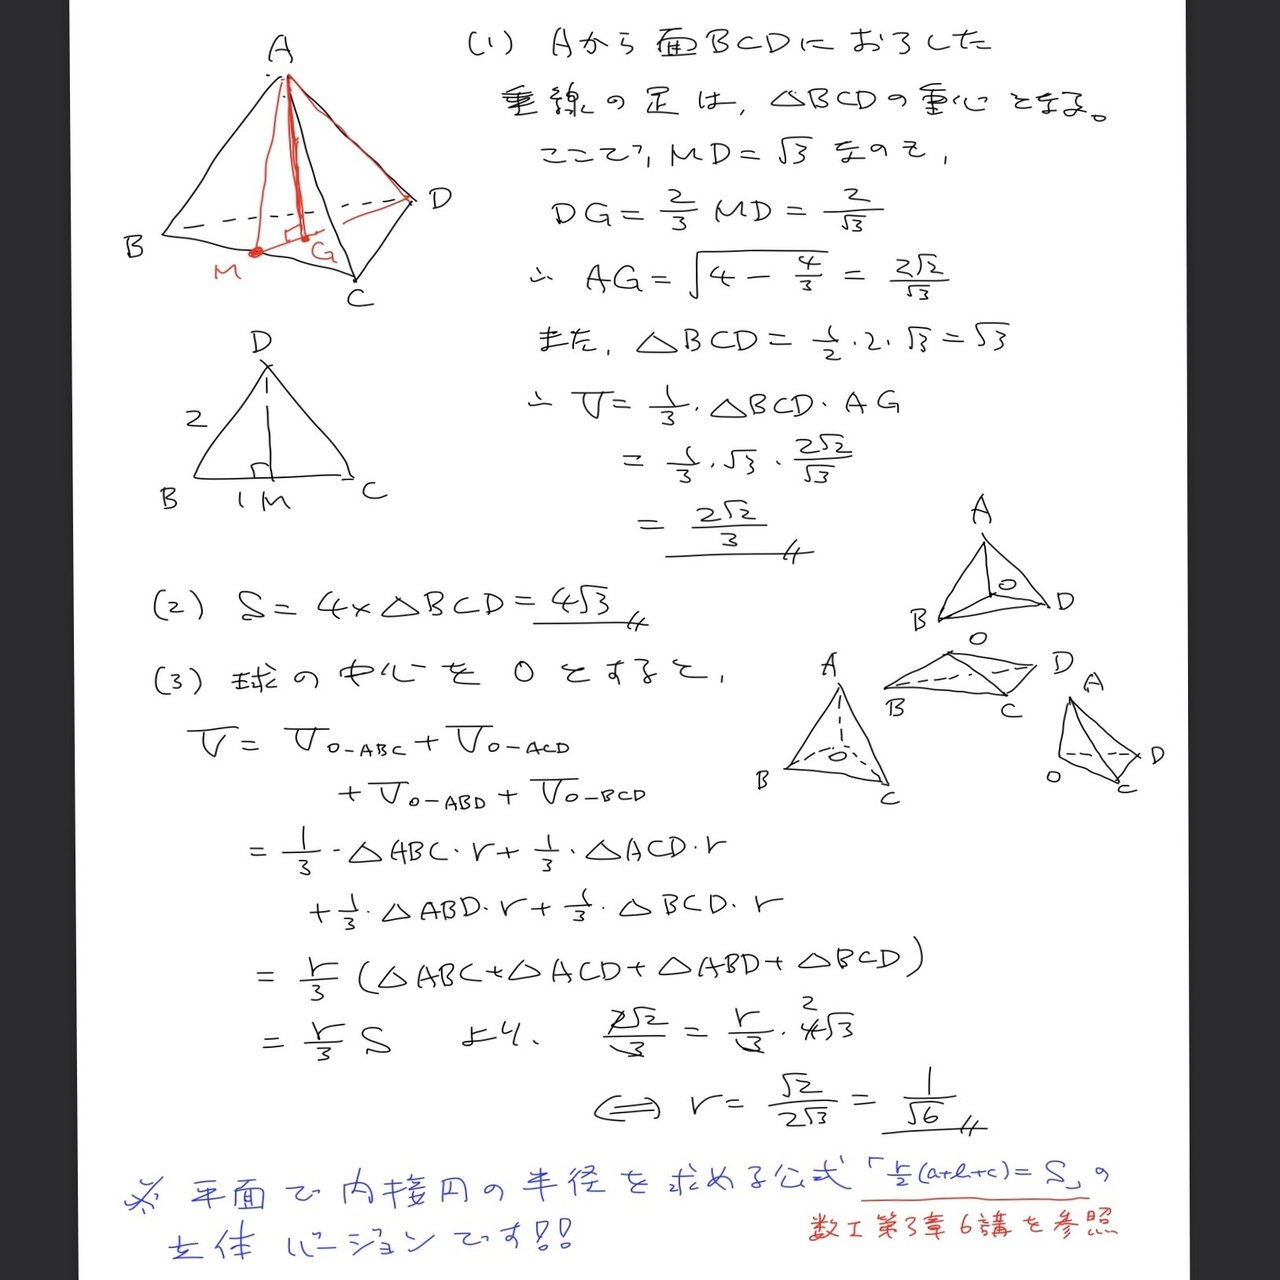 A
B
M
G
C
D
(1) Aから面BCDにおろした
垂線の足は, △BCDの重心となる。
ここで, MD=√3 なので,
DG=2/3 MD=2/√3
∴ AG=√(4-4/3)=2√2/√3
また, △BCD=1/2・2・√3=√3
∴ V=1/3・△BCD・AG
=1/3・√3・2√2/√3
=2√2/3
D
2
B
1
M
C
(2) S=4×△BCD=4√3
(3) 球の中心を O とすると,
V=V_{O-ABC}+V_{O-ACD}
+V_{O-ABD}+V_{O-BCD}
=1/3・△ABC・r+1/3・△ACD・r
+1/3・△ABD・r+1/3・△BCD・r
=r/3(△ABC+△ACD+△ABD+△BCD)
=r/3 S より, 2√2/3=r/3・4√3
2
⇔ r=√2/2√3=1/√6
A
O
B
D
O
B
C
D
A
O
B
C
A
O
C
D
※ 平面で内接円の半径を求める公式「r/2(a+b+c)=S」の
立体バージョンです!!
数I第3章6講を参照